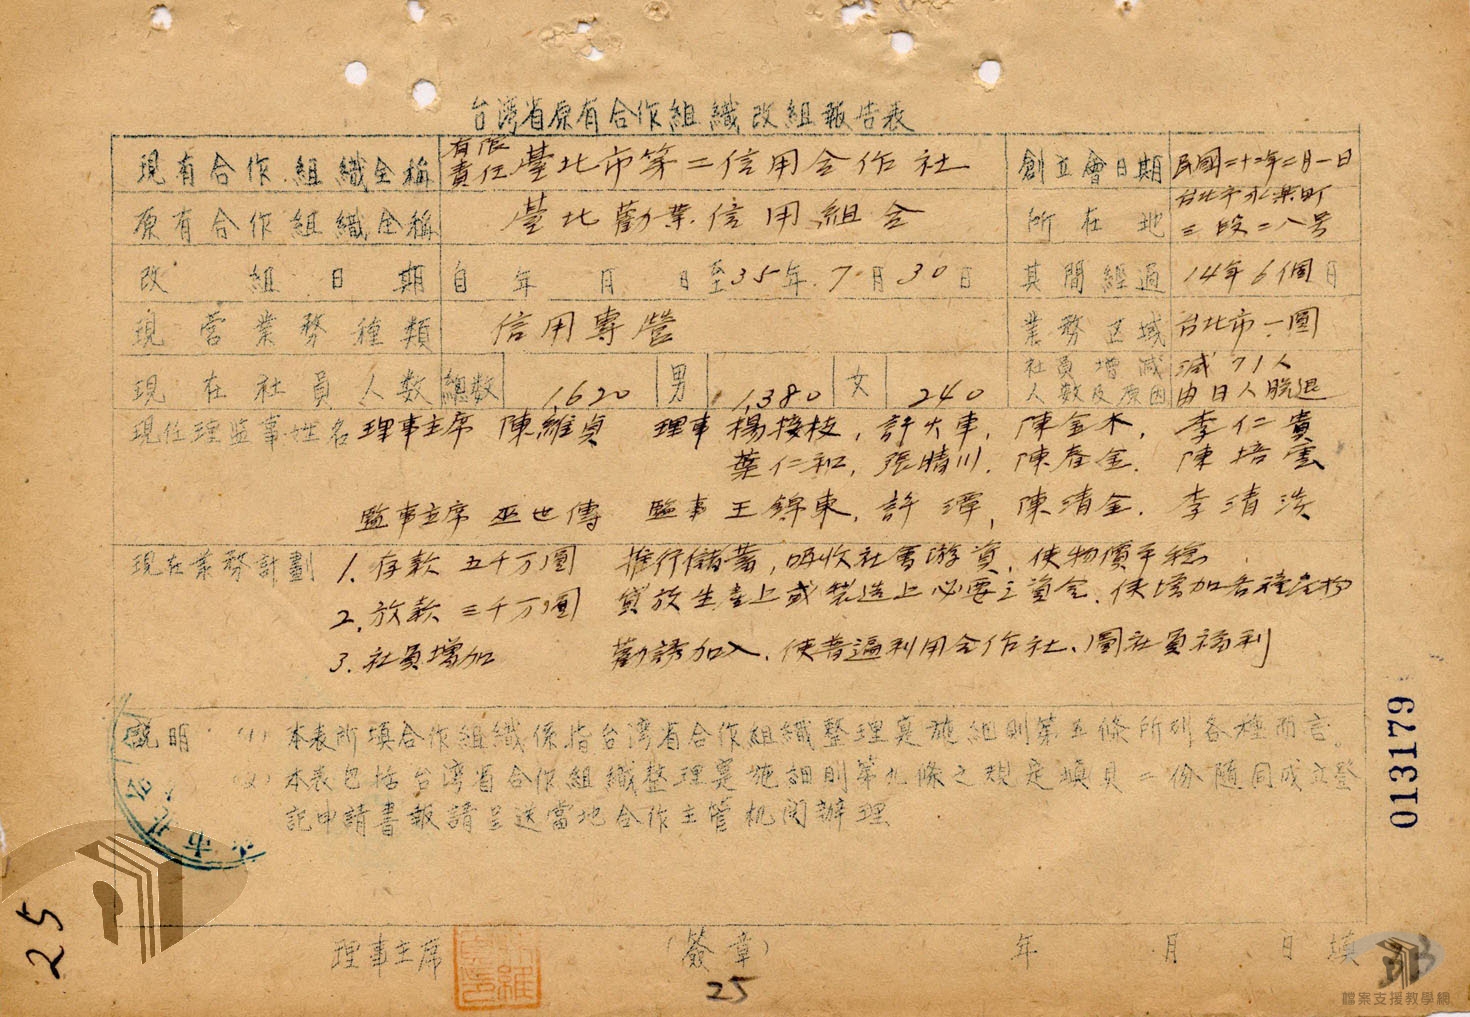 台湾省原有合作組織改組報告表
現有合作組織全稱 有限責任臺北市第二信用合作社 創立會日期 民國二十二年二月一日
原有合作組織全稱 臺北勸業信用組合 所在地 台北市永楽町三段二八号
改組日期 自 年 月 日至35年7月30日 其間經過 14年6個月
現營業務種類 信用專營 業務区域 台北市一圓
現在社員人數 總數 1,620 男 1,380 女 240 社員增減人數及原因 減71人由日人脫退
現任理监事姓名 理事主席 陳維貞 理事 楊接枝, 許火車, 陳金木, 李仁貴
葉仁和, 張晴川, 陳春金, 陳培雲
監事主席 巫世傳 監事 王錦東, 許潭, 陳清金, 李清
現在業務計劃 1. 存款 五千万圓 推行儲蓄,吸收社會游資,使物價平穩
2. 放款 三千万圓 貸放生産上或製造上必要之資金、使增加各種産物
3. 社員增加 勸誘加入、使普遍利用合作社、圖社員福利
說明 (1) 本表所填合作組織係指台湾省合作組織整理實施細則第五條所列各種而言
(2) 本表包括台湾省合作組織整理實施細則第九條之規定填具二份隨同成立登
記申請書報請呈送當地合作主管机関辦理
013179
理事主席 (簽章) 年 月 日 填
25
25
檔案支援教學網